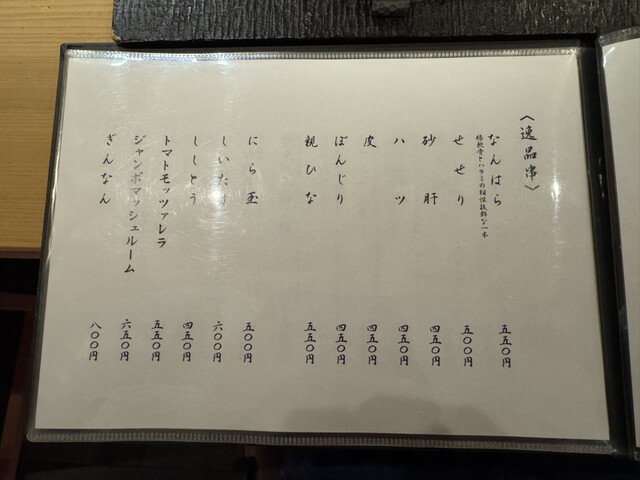 〈逸品串〉
なんはら
膝軟骨とハラミの相性抜群な一本
五五〇円
せせり
五〇〇円
砂肝
四五〇円
ハツ
四五〇円
皮
四五〇円
ぼんじり
四五〇円
親ひな
五五〇円
にら玉
五〇〇円
しいたけ
六〇〇円
ししとう
四五〇円
トマトモッツァレラ
五五〇円
ジャンボマッシュルーム
六五〇円
ぎんなん
八〇〇円